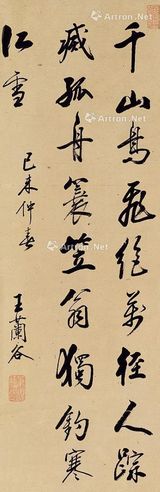 千山鳥飛絕萬徑人踪
滅孤舟蓑笠翁獨釣寒
江雪
己未仲春
王蘭谷
Artron.Net